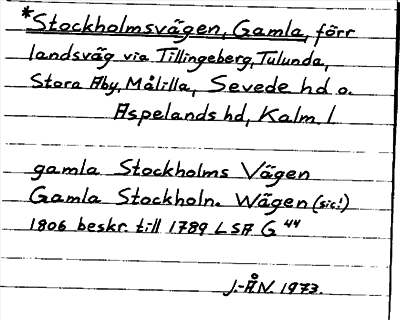 *Stockholmsvägen, Gamla, förr
landsväg via Tillingeberg, Tulunda,
Stora Aby, Målilla, Sevede hd o.
Aspelands hd, Kalm. l.
gamla Stockholms Vägen
Gamla Stockholn. Wägen (sic!)
1806 beskr. till 1789 LSA G 44
J.-ÅN. 1973.